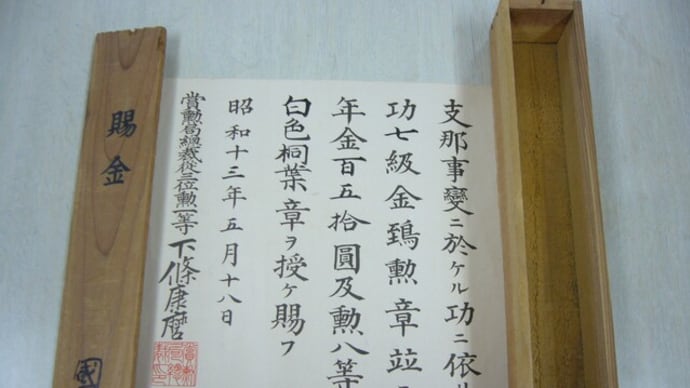 支那事變ニ於ケル功ニ依
功七級金鵄勳章竝
年金百五拾圓及勳八等
白色桐葉章ヲ授ケ賜フ
昭和十三年五月十八日
賞勳局總裁從三位勳一等下條康麿
賜金
國